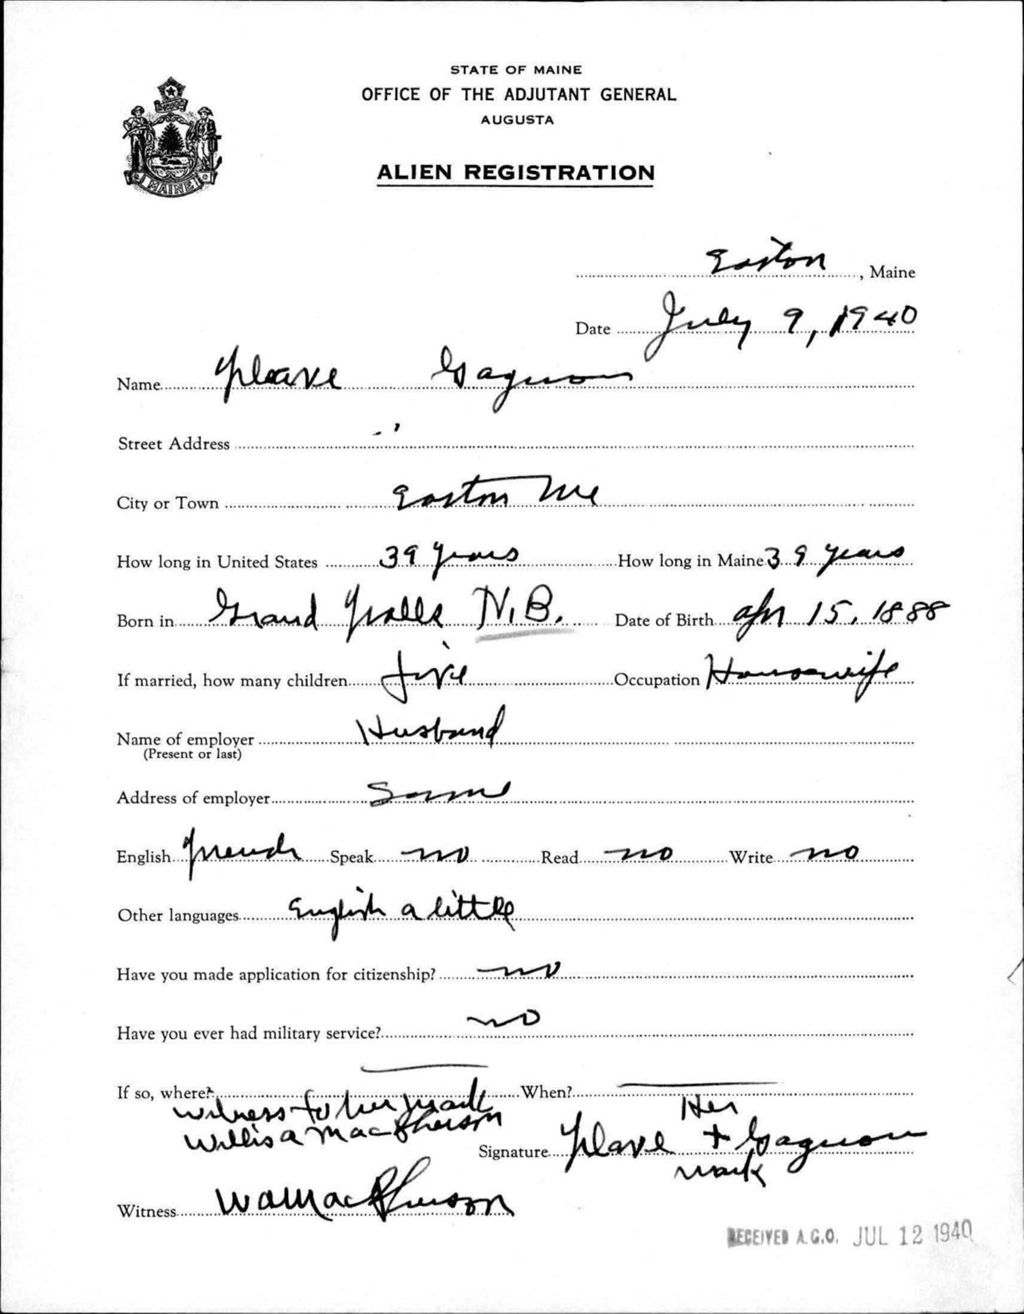 STATE OF MAINE
OFFICE OF THE ADJUTANT GENERAL
AUGUSTA
ALIEN REGISTRATION
MAINE
Easton, Maine
Date July 9, 1940
Name Gagnon
Street Address
City or Town Easton Me
How long in United States 39 years How long in Maine 39 years
Born in Grand Falls N.B. Date of Birth Apr 15, 1888
If married, how many children five Occupation Housewife
Name of employer Husband
(Present or last)
Address of employer Same
English French Speak no Read no Write no
Other languages English a little
Have you made application for citizenship? no
Have you ever had military service? no
If so, where? When?
witness to her mark
Willis A MacPherson
Her
Signature + Gagnon
mark
Witness W A MacPherson
RECEIVED A.G.O. JUL 12 1940